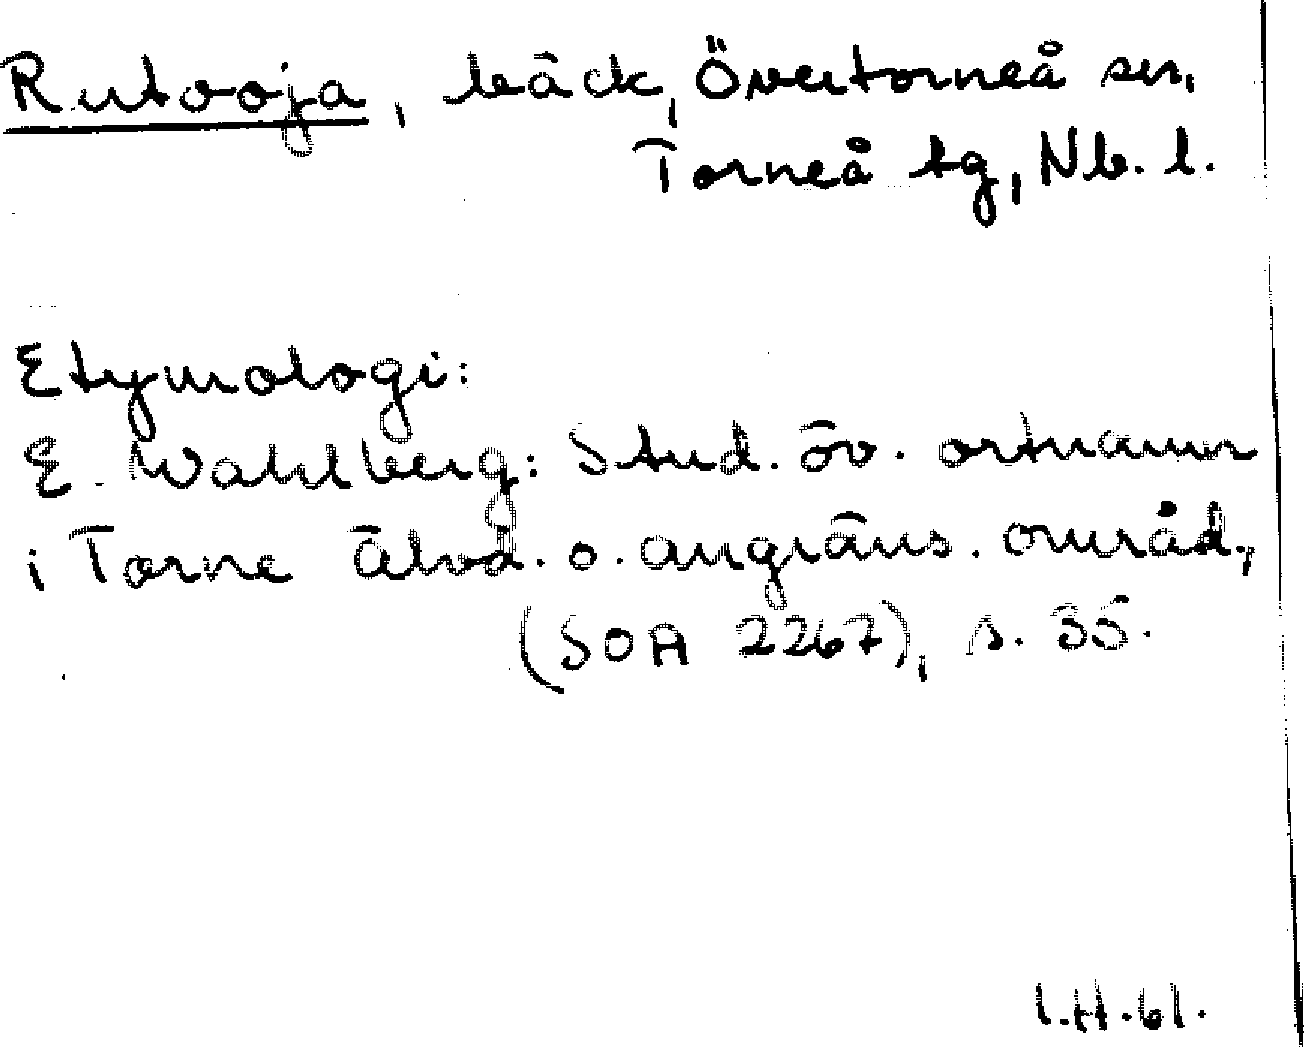 Rutooja, bäck, Övertorneå sn,
Torneå tg, Nb. l.
Etymologi:
E. Wahlberg: Stud. öv. ortnamn
i Torne älvd. o. angräns. områd.,
(SOA 2267), s. 35.
I.H.61.